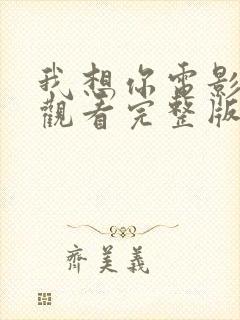 我想你電影
觀看完整版
齊美義